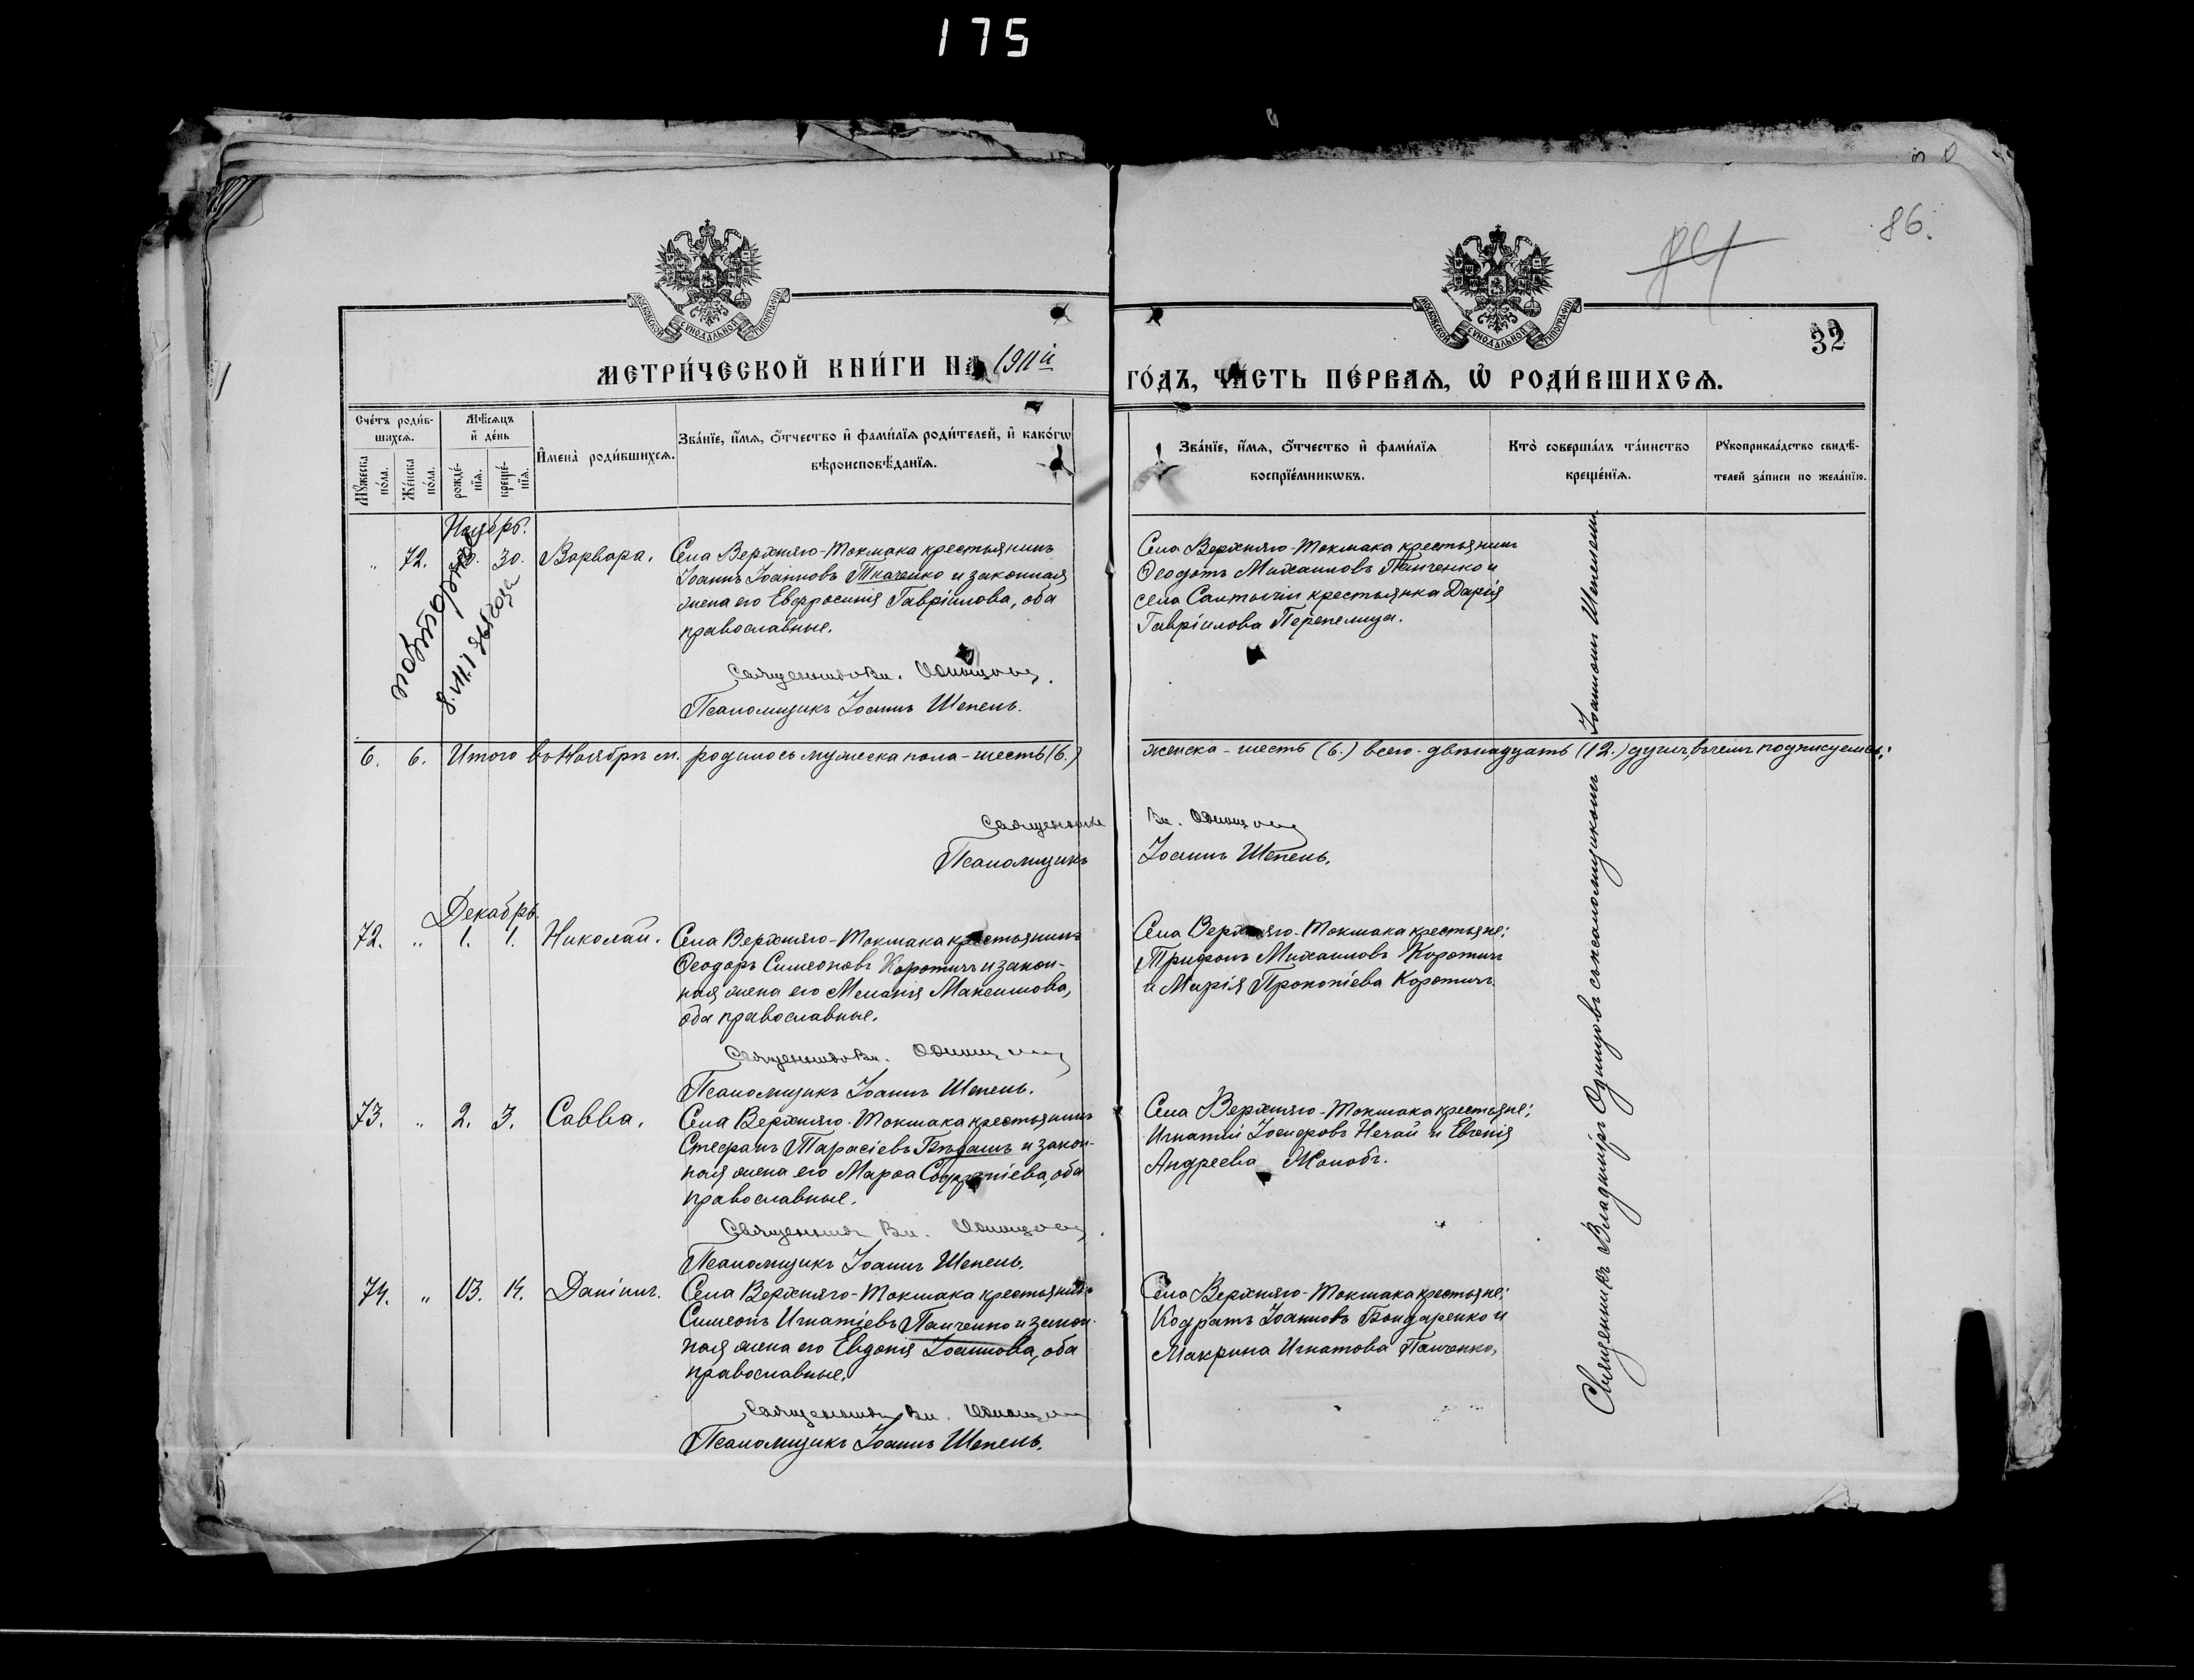 175
86.
84
32
МОСКОВСКОЙ СѴНОДАЛЬНОЙ ТИПОГРАФІИ
МОСКОВСКОЙ СѴНОДАЛЬНОЙ ТИПОГРАФІИ
МЕТРИ́ЧЕСКОЙ КНИ́ГИ НА 1911й
ГО́ДЪ, ЧА́СТЬ ПЕ́РВАѦ, Ѡ҆ РОДИ́ВШИХСѦ.
Сче́тъ роди́в-
шихсѧ.
Мꙋ́жеска по́ла.
Же́нска по́ла.
Мѣ́сѧцъ
и҆ де́нь
рожде́-
нїѧ.
креще́-
нїѧ.
И҆мена̀ роди́вшихсѧ.
Зва́нїе, и҆́мѧ, ѻ҆́тчество и҆ фами́лїѧ роди́телей, и҆ како́гѡ
вѣроисповѣ́данїѧ.
Зва́нїе, и҆́мѧ, ѻ҆́тчество и҆ фами́лїѧ
воспрїе́мникѡвъ.
Кто̀ соверша́лъ та́инство
креще́нїѧ.
Рꙋкоприкла́дство свидѣ́-
телей за́писи по жела́нїю.
Ноябрь.
„ 72. 30. Варвара. Села Верхняго-Токмака крестьянинъ
Іоаннъ Іоанновъ Ткаченко и законная
жена его Евфросинія Гавріилова, оба
православные.
Священник Вл. Одинцовъ.
Псаломщикъ Іоаннъ Шепель.
Села Верхняго-Токмака крестьянинъ
Ѳеодотъ Михаиловъ Панченко и
села Салтычіи крестьянка Дарія
Гавріилова Перепелица.
повторное
8.VII.
6. 6. Итого въ Ноябрѣ м. родилось мужеска пола - шесть (6.)
женска - шесть (6.) всего - двѣнадцать (12.) душъ, въ чемъ подписуемся:
Священник Вл. Одинцовъ
Псаломщикъ Іоаннъ Шепель.
Декабрь.
72. „ 1. 1. Николай. Села Верхняго-Токмака крестьянинъ
Ѳеодоръ Симеоновъ Коротичъ и закон-
ная жена его Меланія Максимова,
оба православные.
Священник Вл. Одинцовъ
Псаломщикъ Іоаннъ Шепель.
Села Верхняго-Токмака крестьяне:
Трифонъ Михаиловъ Коротичъ
и Марія Прокопіева Коротичъ.
73. „ 2. 3. Савва. Села Верхняго-Токмака крестьянинъ
Стефанъ Тарасіевъ Бѣдашъ и закон-
ная жена его Марѳа Софроніева, оба
православные.
Священник Вл. Одинцовъ.
Псаломщикъ Іоаннъ Шепель.
Села Верхняго-Токмака крестьяне:
Игнатій Іосифовъ Нечай и Евгенія
Андреева Жолобъ.
74. „ 13. 14. Даніилъ. Села Верхняго-Токмака крестьянинъ
Симеонъ Игнатіевъ Панченко и закон-
ная жена его Евдокія Іоаннова, оба
православные.
Священник Вл. Одинцовъ
Псаломщикъ Іоаннъ Шепель.
Села Верхняго-Токмака крестьяне:
Кодратъ Іоанновъ Бондаренко и
Макрина Игнатова Панченко.
Священникъ Владиміръ Одинцовъ съ псаломщикомъ Іоанномъ Шепелемъ.